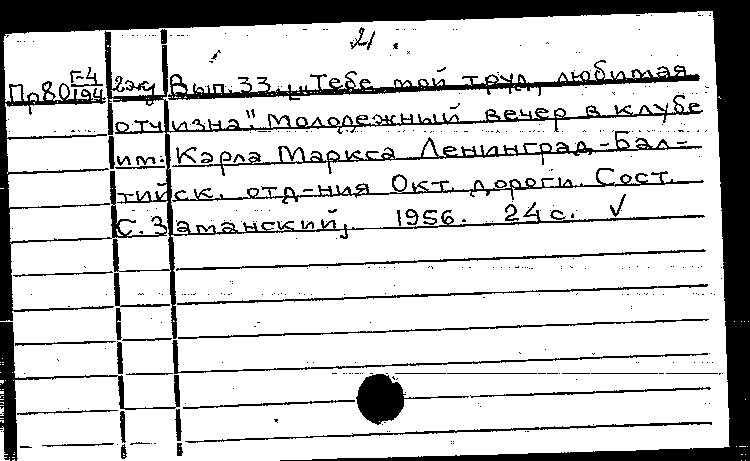 21.
Пр80 Г-4/194 2экз Вып. 33. „Тебе мой труд, любимая
отчизна". Молодежный вечер в клубе
им. Карла Маркса Ленинград-Бал-
тийск. отд-ния Окт. дороги. Сост.
С. Заманский, 1956. 24 с. ✓